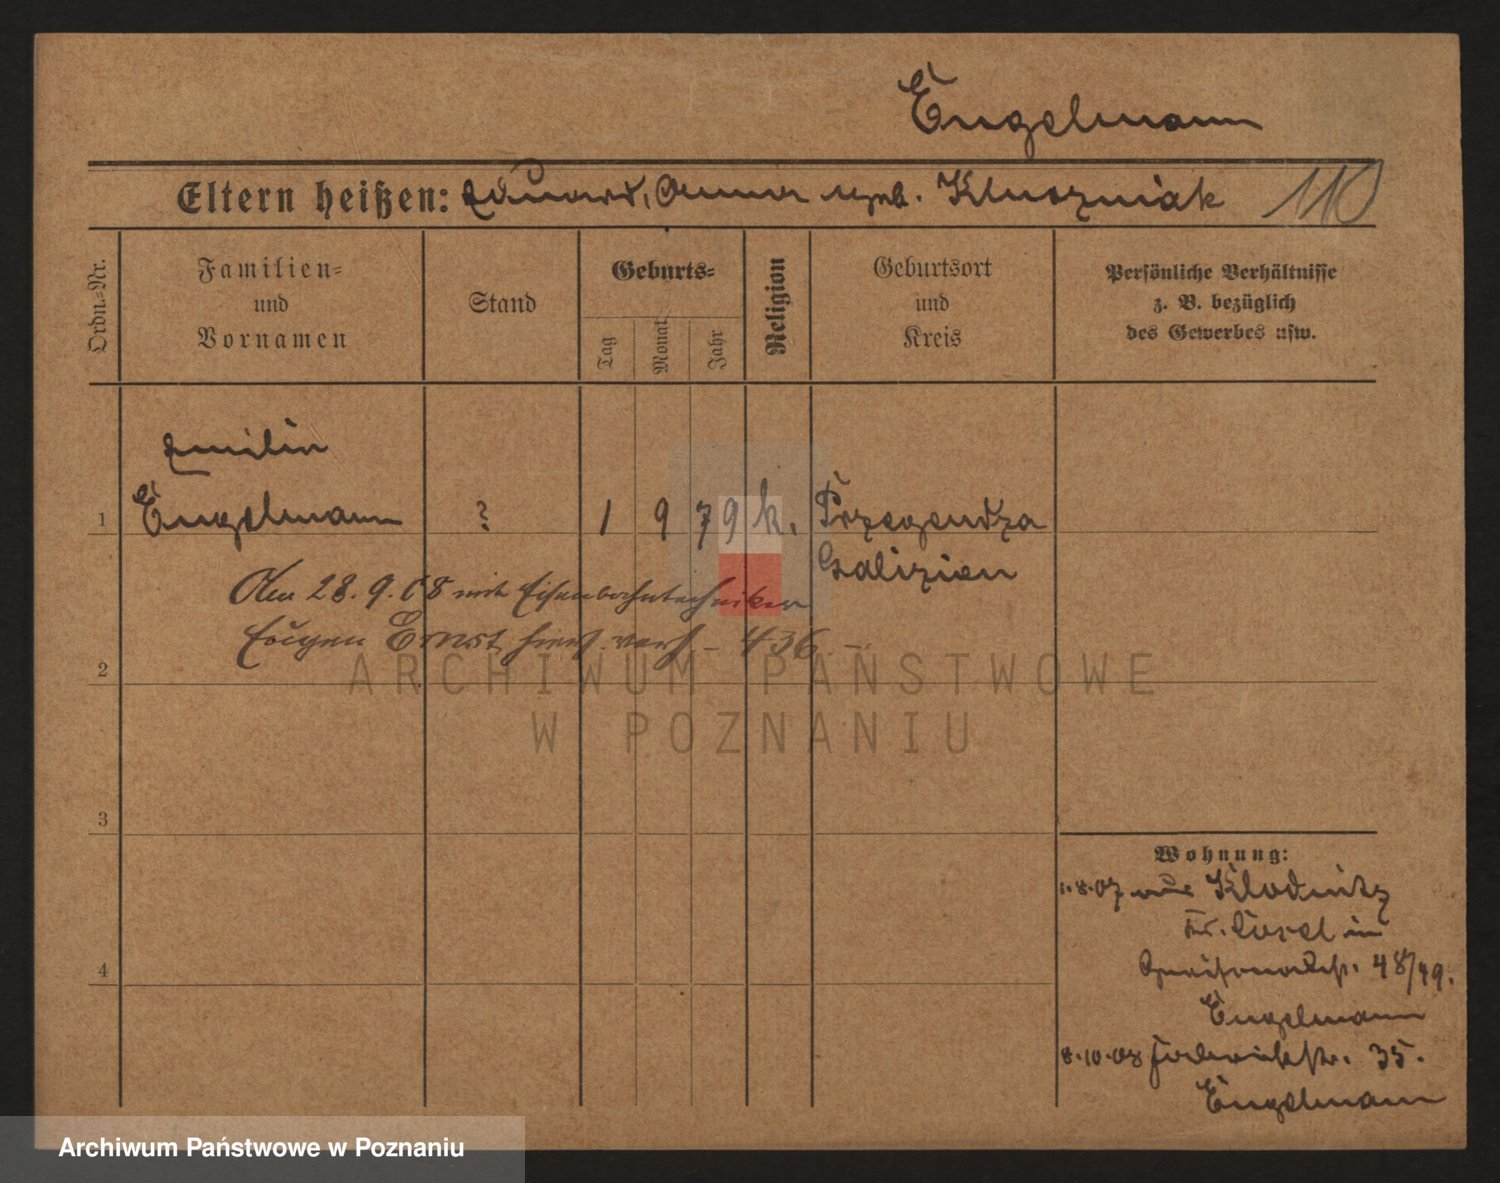 Engelmann
Eltern heißen: Eduard, Anna geb. Kluszniak 110
Ordn.-Nr.
Familien-
und
Vornamen
Stand
Geburts-
Tag
Monat
Jahr
Religion
Geburtsort
und
Kreis
Persönliche Verhältnisse
z. B. bezüglich
des Gewerbes usw.
Emilie
1 Engelmann ? 1 9 79 k.
Galizien
28.9.08 mit Eisenbahntechniker
Eugen Ernst verh. - 436. -
2
3
4
Wohnung:
1.8.07 aus Klodnitz
Kr. Cosel in
48/49.
Engelmann
8.10.08 35.
Engelmann
ARCHIWUM PAŃSTWOWE
W POZNANIU
Archiwum Państwowe w Poznaniu